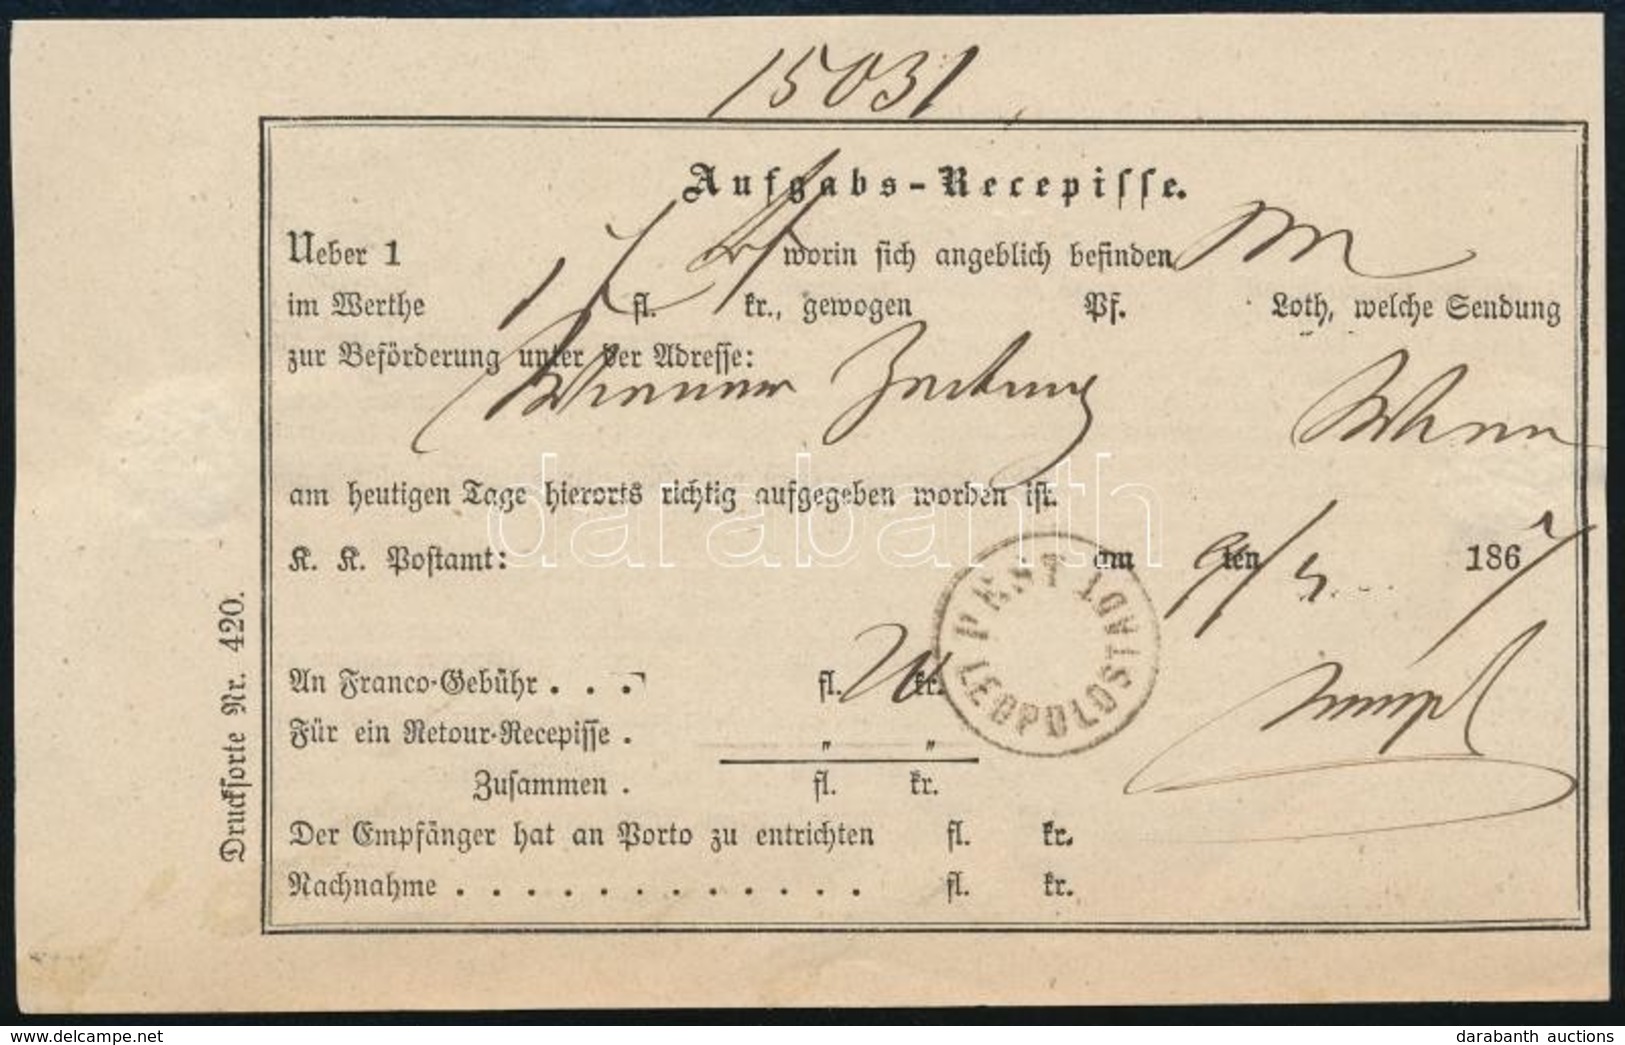 15031
Aufgabs-Recepisse.
Ueber 1 worin sich angeblich befinden
im Werthe fl. kr., gewogen Pf. Loth, welche Sendung
zur Beförderung unter der Adresse:
Wiener Zeitung Wien
am heutigen Tage hierorts richtig aufgegeben worden ist.
K. K. Postamt: am 9/ten 5 1867
PEST LEOPOLDSTADT
An Franco-Gebühr . . . fl. kr.
Für ein Retour-Recepisse . " "
Zusammen . fl. kr.
Der Empfänger hat an Porto zu entrichten fl. kr.
Nachnahme . . . . . . . . . . . . . fl. kr.
Drucksorte Nr. 420.
darabanth
www.darabanth.com
darabanth auctions